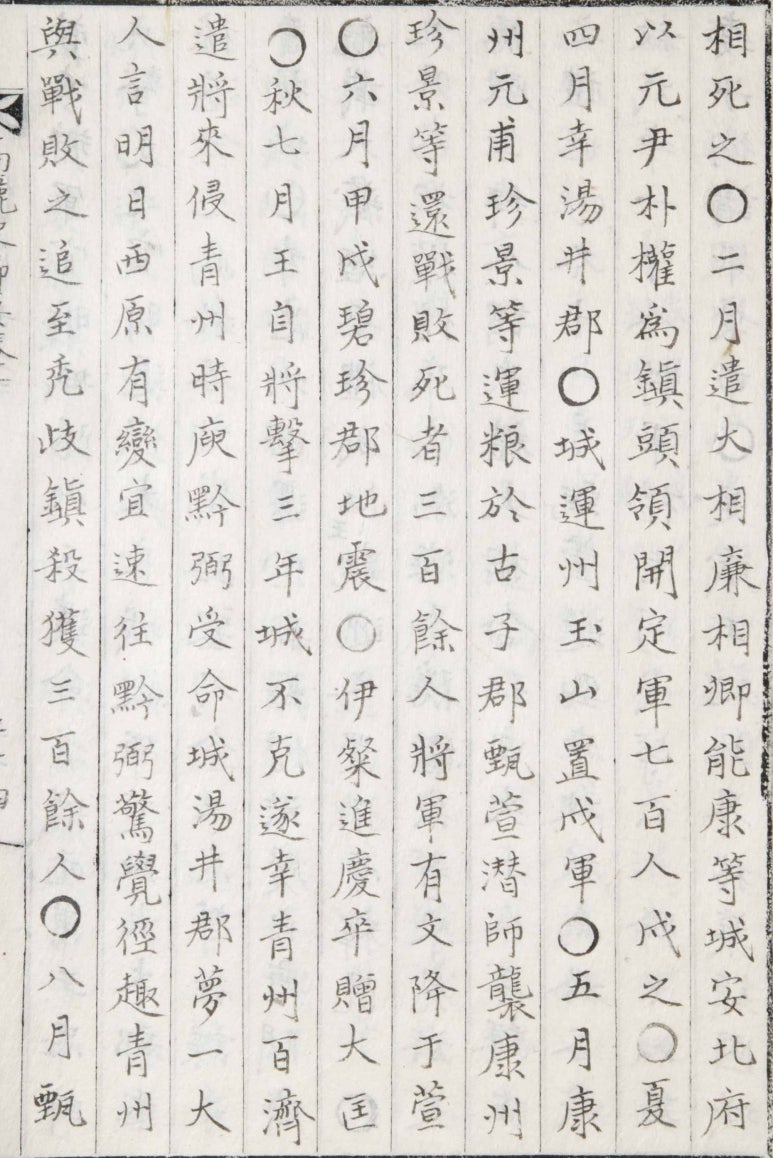 相死之〇二月遣大相廉相卿能康等城安北府
以元尹朴權爲鎭頭領開定軍七百人戍之〇夏
四月幸湯井郡〇城運州玉山置戍軍〇五月康
州元甫珍景等運粮於古子郡甄萱潛師襲康州
珍景等還戰敗死者三百餘人將軍有文降于萱
〇六月甲戌碧珍郡地震〇伊粲進慶卒贈大匡
〇秋七月王自將擊三年城不克遂幸青州百濟
遣將來侵青州時庾黔弼受命城湯井郡夢一大
人言明日西原有變宜速往黔弼驚覺徑趣青州
與戰敗之追至禿歧鎭殺獲三百餘人〇八月甄